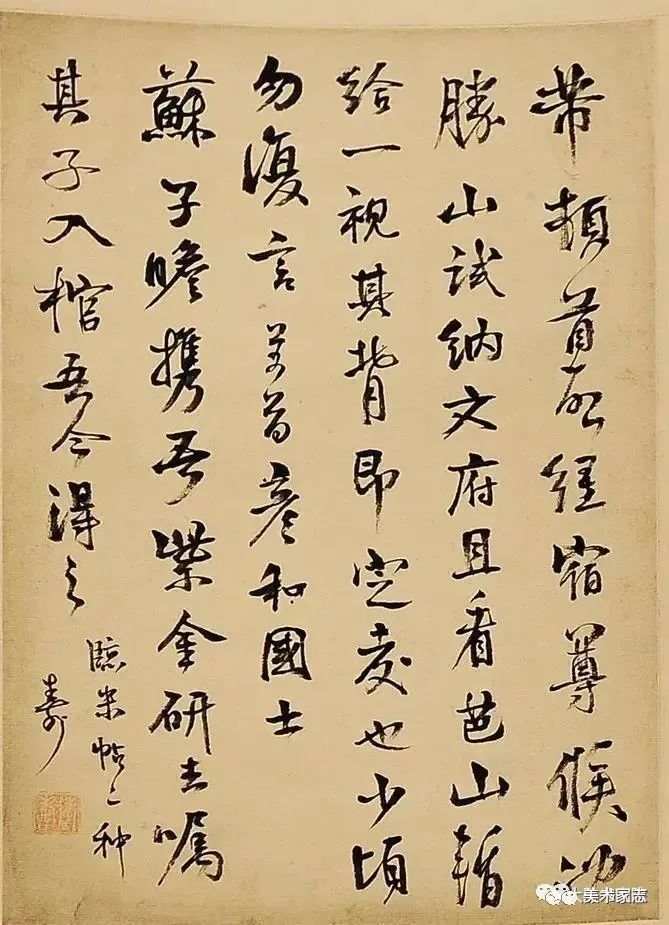 芾頓首啟經宿尊候沖
勝山試納文府且看芭山暫
給一視其背即定交也少頃
勿復言芾頓首彥和國士
蘇子瞻攜吾紫金研去囑
其子入棺吾今得之
臨米帖二种
壽
大美术家志